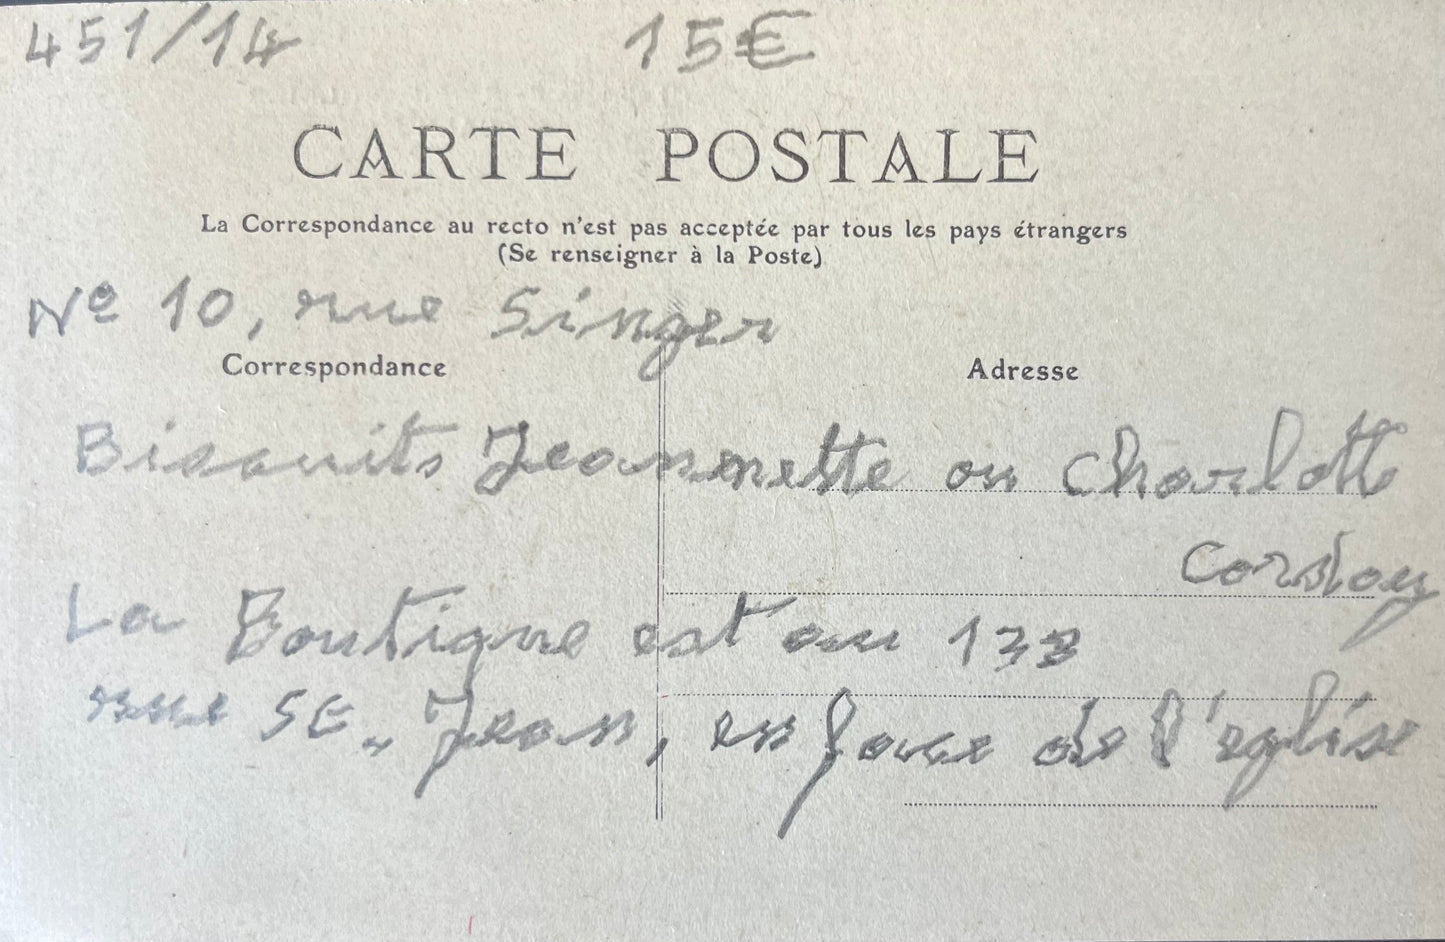 451/14 15€
CARTE POSTALE
La Correspondance au recto n'est pas acceptée par tous les pays étrangers
(Se renseigner à la Poste)
Nº 10, rue Singer
Correspondance
Adresse
Biscuits Jeannette ou Charlotte
Corday
La Boutique est au 133
rue St-Jean, en face de l'église